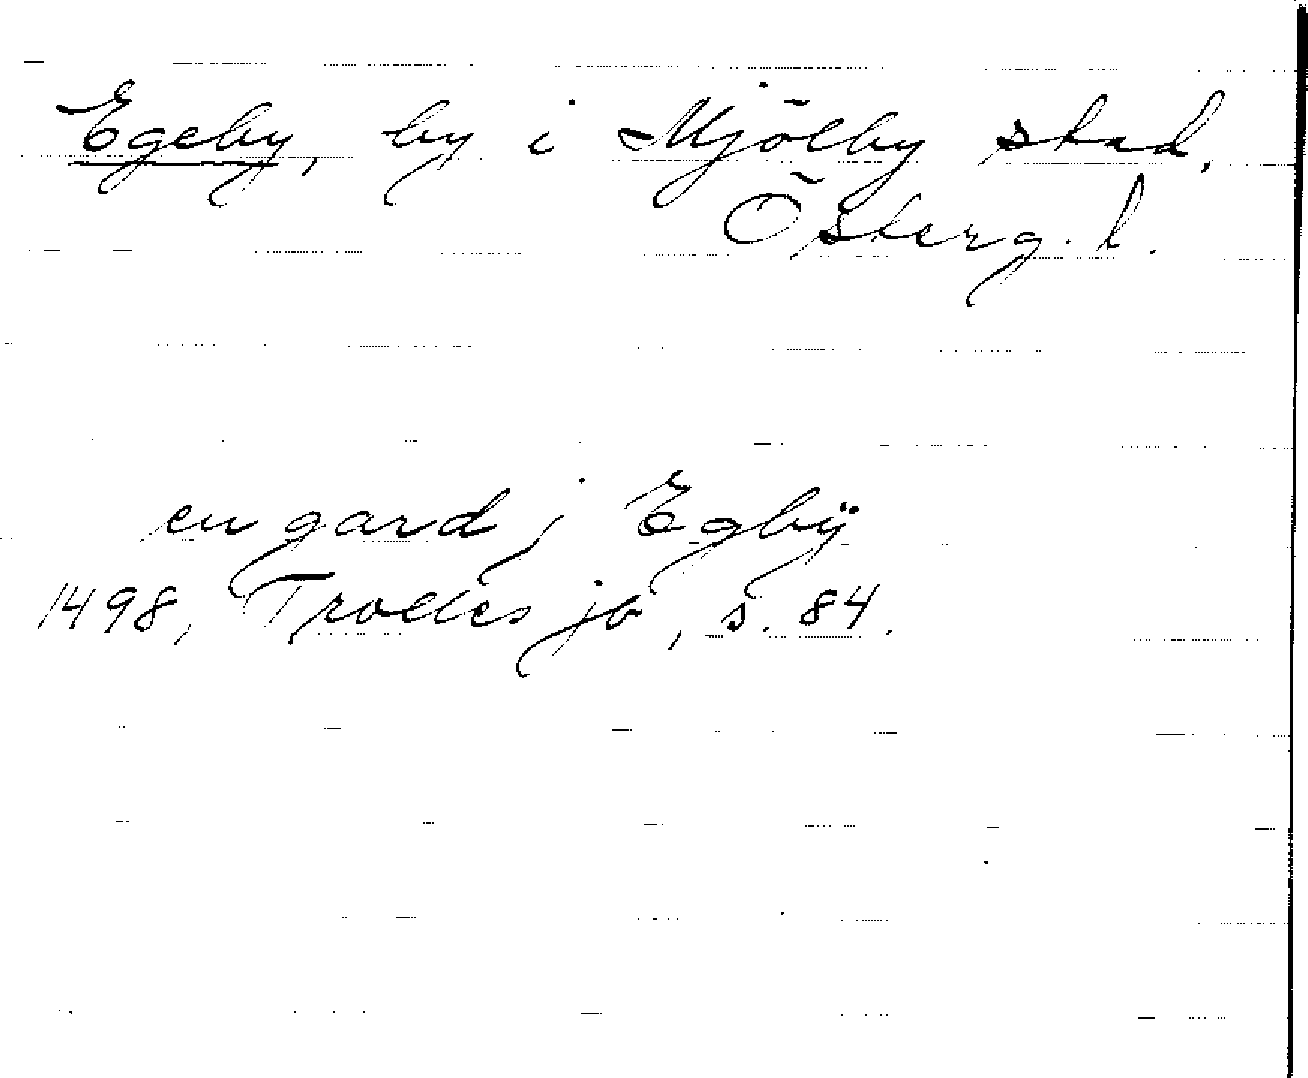 Egeby, by i Mjölby stad,
Österg. l.
en gard j Egbÿ
1498, Trolles jb, s. 84.